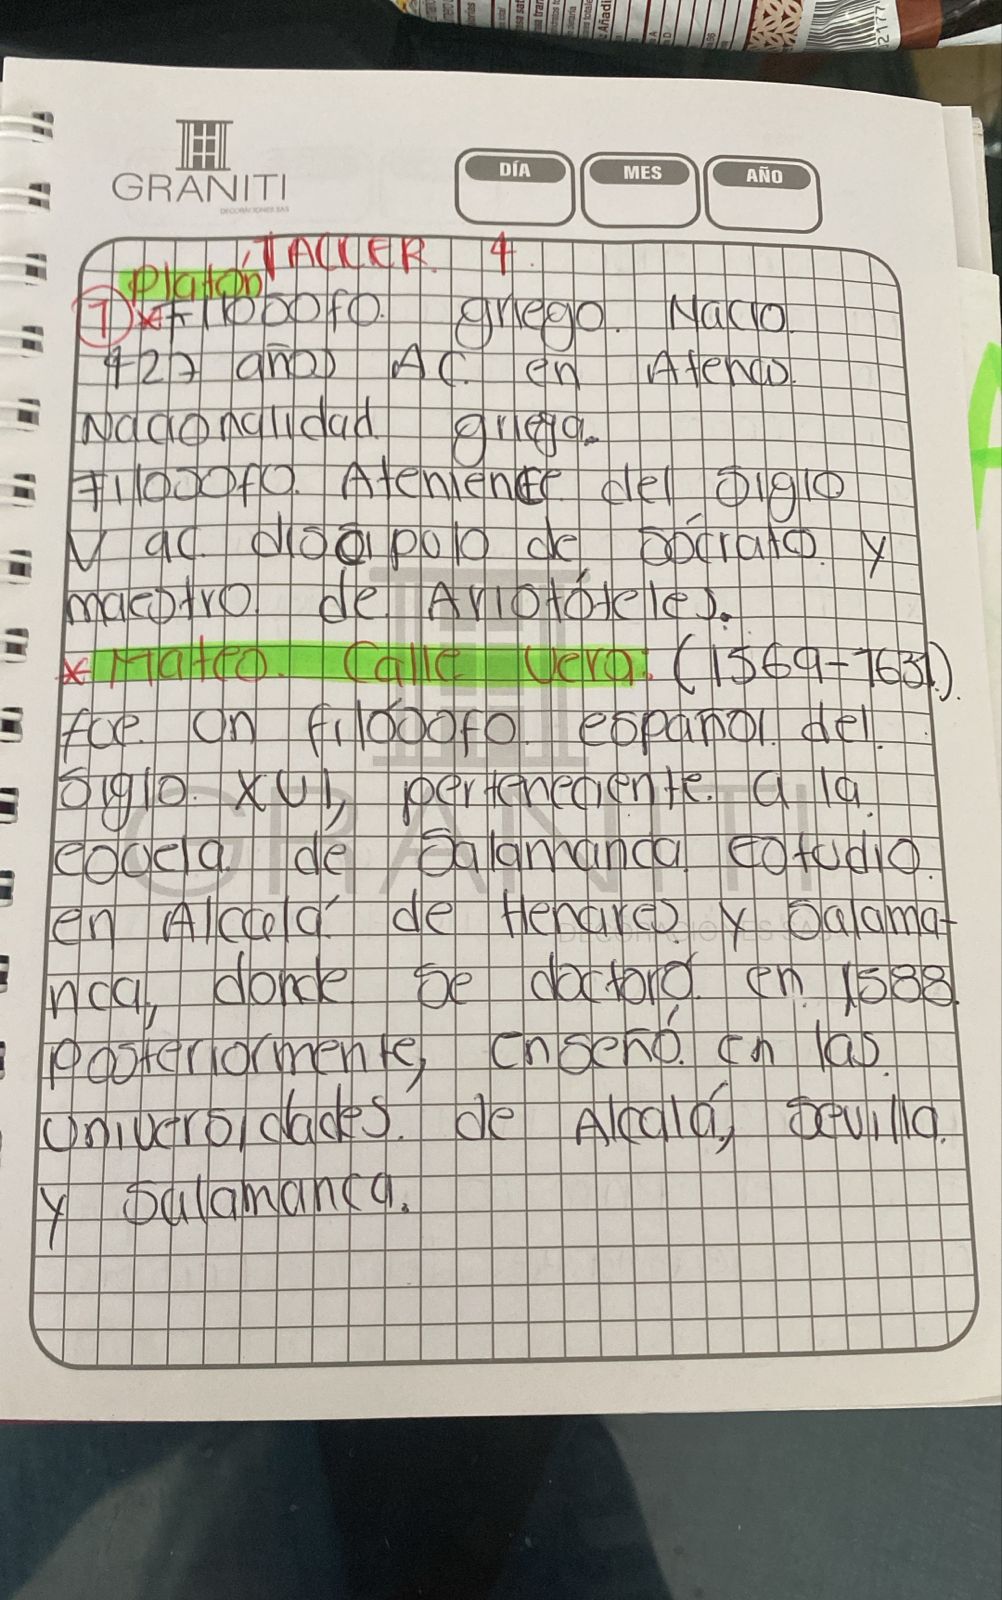 GRANITI
DECORACIONES SAS
DÍA MES AÑO
TALLER 4.
Platón
1 * Filosofo griego. Nacio
427 años AC. en Atenas.
Nacionalidad griega.
Filosofo Ateniense del siglo
V ac. discipulo de Sócrates y
maestro de Aristóteles.
* Mateo Calle Vera: (1569-1631).
fue un filósofo español del
siglo XVI, perteneciente a la
escuela de Salamanca estudio
en Alcalá de Henares y Salama-
nca, donde se doctoró en 1588.
Posteriormente, enseñó en las
Universidades de Alcalá, Sevilla
y Salamanca.